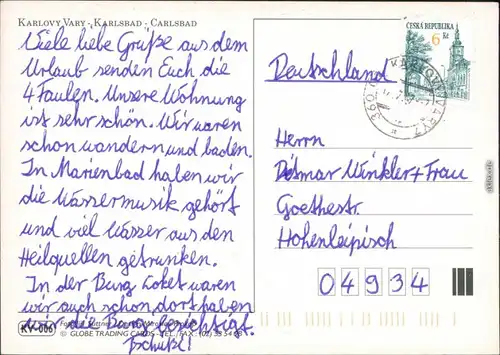 KARLOVY VARY - KARLSBAD - CARLSBAD
Viele liebe Grüße aus dem
Urlaub senden Euch die
4 Faulen. Unsere Wohnung
ist sehr schön. Wir waren
schon wandern und baden.
In Marienbad haben wir
die Wassermusik gehört
und viel Wasser aus den
Heilquellen getrunken.
In der Burg Loket waren
wir auch schon, dort haben
wir die Burg besichtigt.
Tschüß!
KV-006
© GLOBE TRADING CARDS - TEL./FAX.
ČESKÁ REPUBLIKA
6 Kč
KARLOVY VARY 7
Deutschland
Herrn
Ditmar Winkler + Frau
Goethestr.
Hohenleipisch
04934